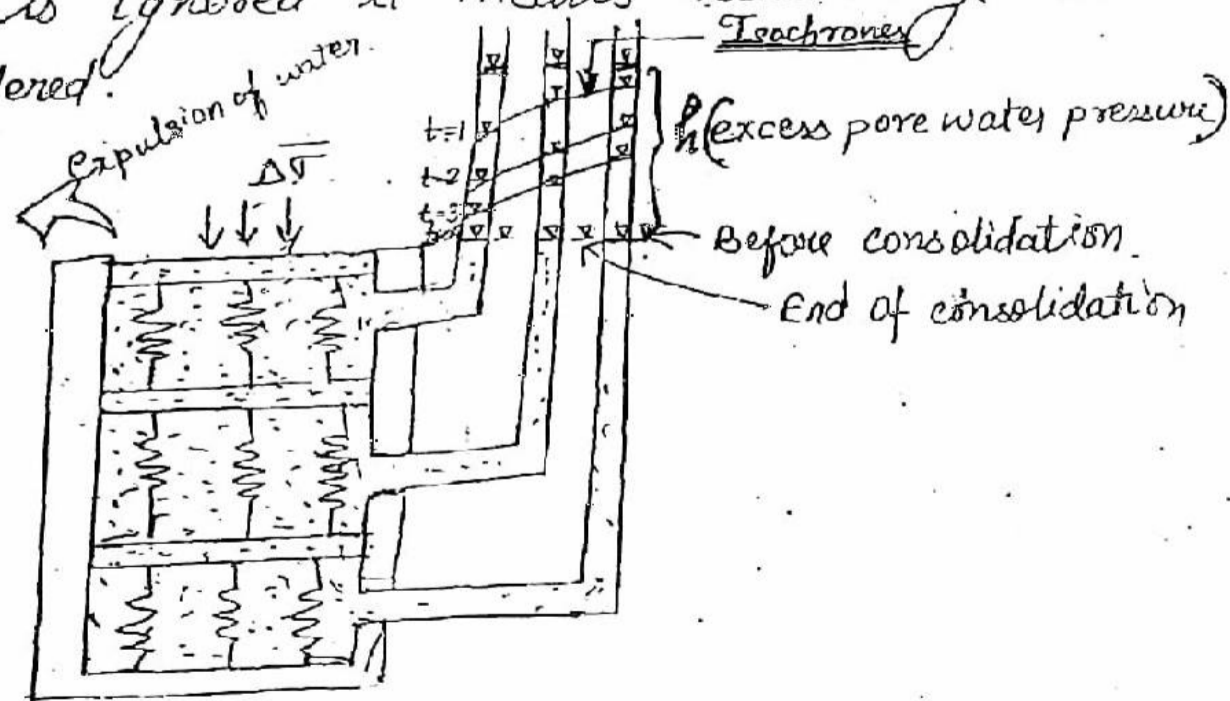 is ignored it means
Isochrones
dered.
Expulsion of water.
Δσ̅
t=1
t=2
t=3
h(excess pore water pressure)
Before consolidation.
End of consolidation